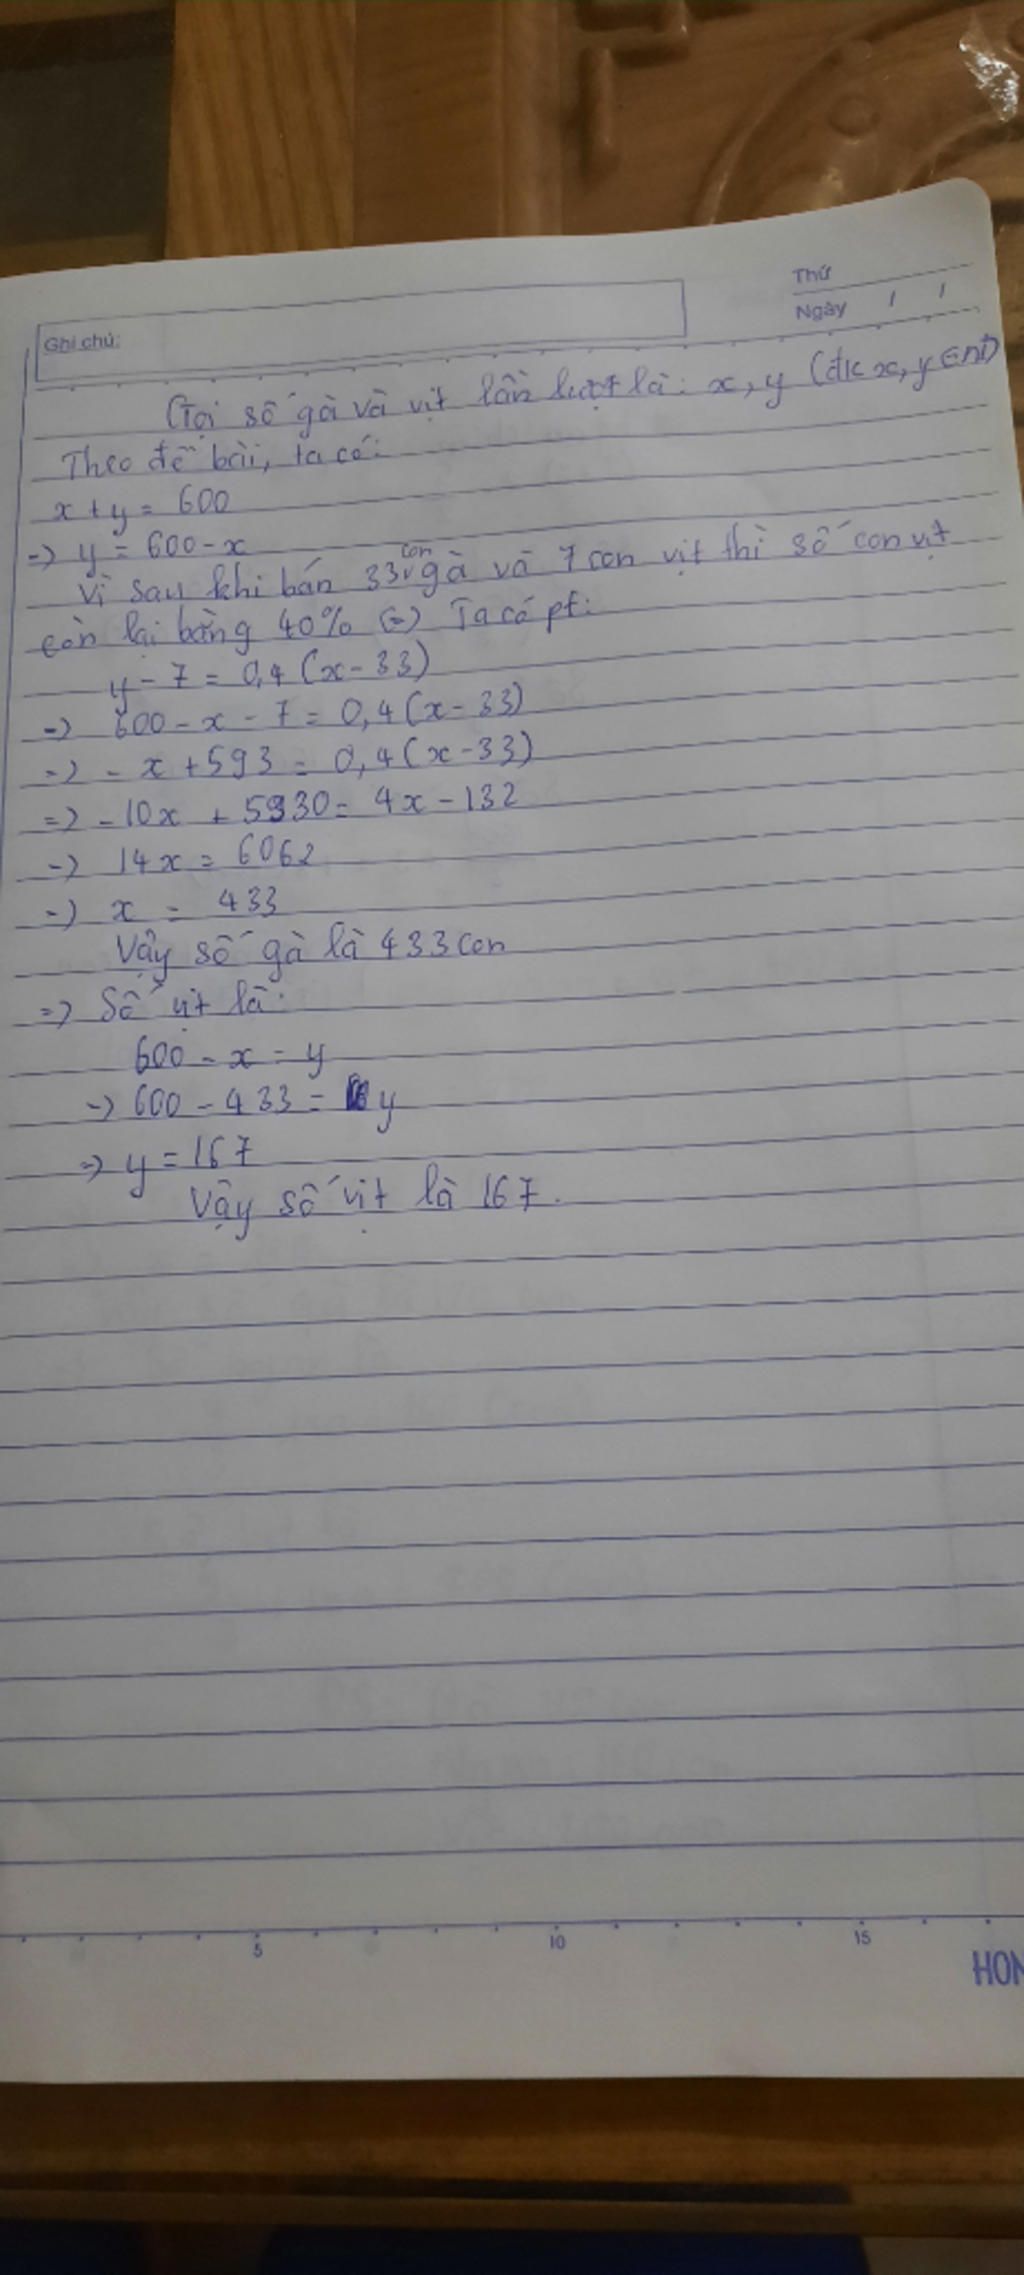 Thứ
Ngày / /
Ghi chú:
Gọi số gà và vịt lần lượt là: x, y (đk x, y ∈ N)
Theo đề bài, ta có:
x + y = 600
=> y = 600 - x
Vì sau khi bán 33 con gà và 7 con vịt thì số con vịt
còn lại bằng 40% (=) Ta có pt:
y - 7 = 0,4 (x - 33)
=> 600 - x - 7 = 0,4 (x - 33)
=> - x + 593 = 0,4 (x - 33)
=> - 10x + 5930 = 4x - 132
=> 14x = 6062
=> x = 433
Vậy số gà là 433 con
=> Số vịt là:
600 - x = y
=> 600 - 433 = y
=> y = 167
Vậy số vịt là 167.
5 10 15
HON